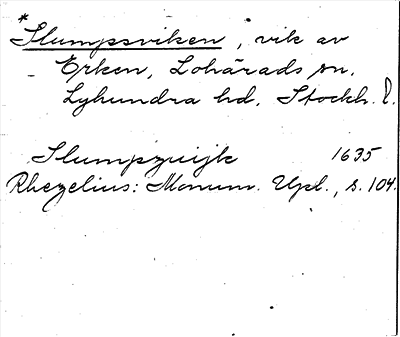 *Slumpsviken, vik av
Erken, Lohärads sn.
Lyhundra hd. Stockh. l.
Slumpzuijk 1635
Rhezelius: Monum. Upl., s. 104.